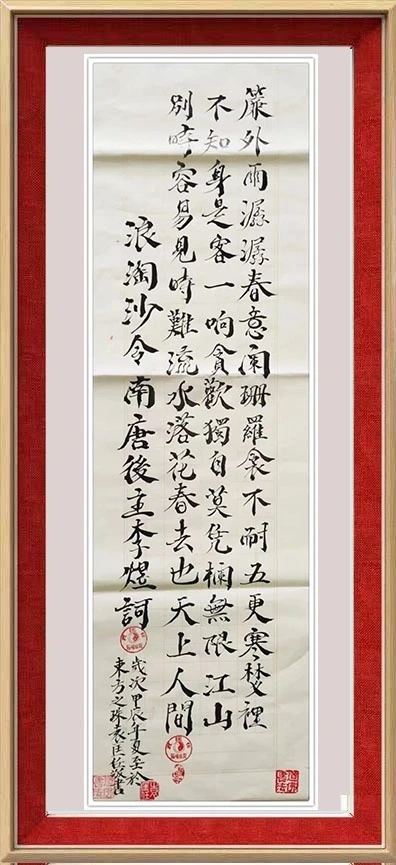 簾外雨潺潺春意闌珊羅衾不耐五更寒梦裡
不知身是客一响貪歡獨自莫凭欄無限江山
別時容易見時難流水落花春去也天上人間
浪淘沙令南唐後主李煜詞
歲次甲辰年夏至於
東方之珠袁匡書